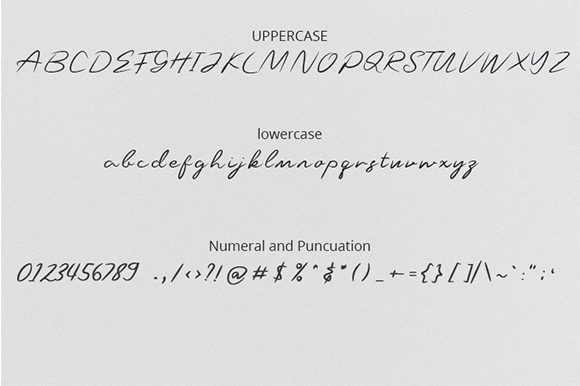 UPPERCASE
ABCDEFGHIJKLMNOPQRSTUVWXYZ
lowercase
abcdefghijklmnopqrstuvwxyz
Numeral and Puncuation
0123456789 .,/<>?!@#$%^&*()_+={}[]/\~`:";‘